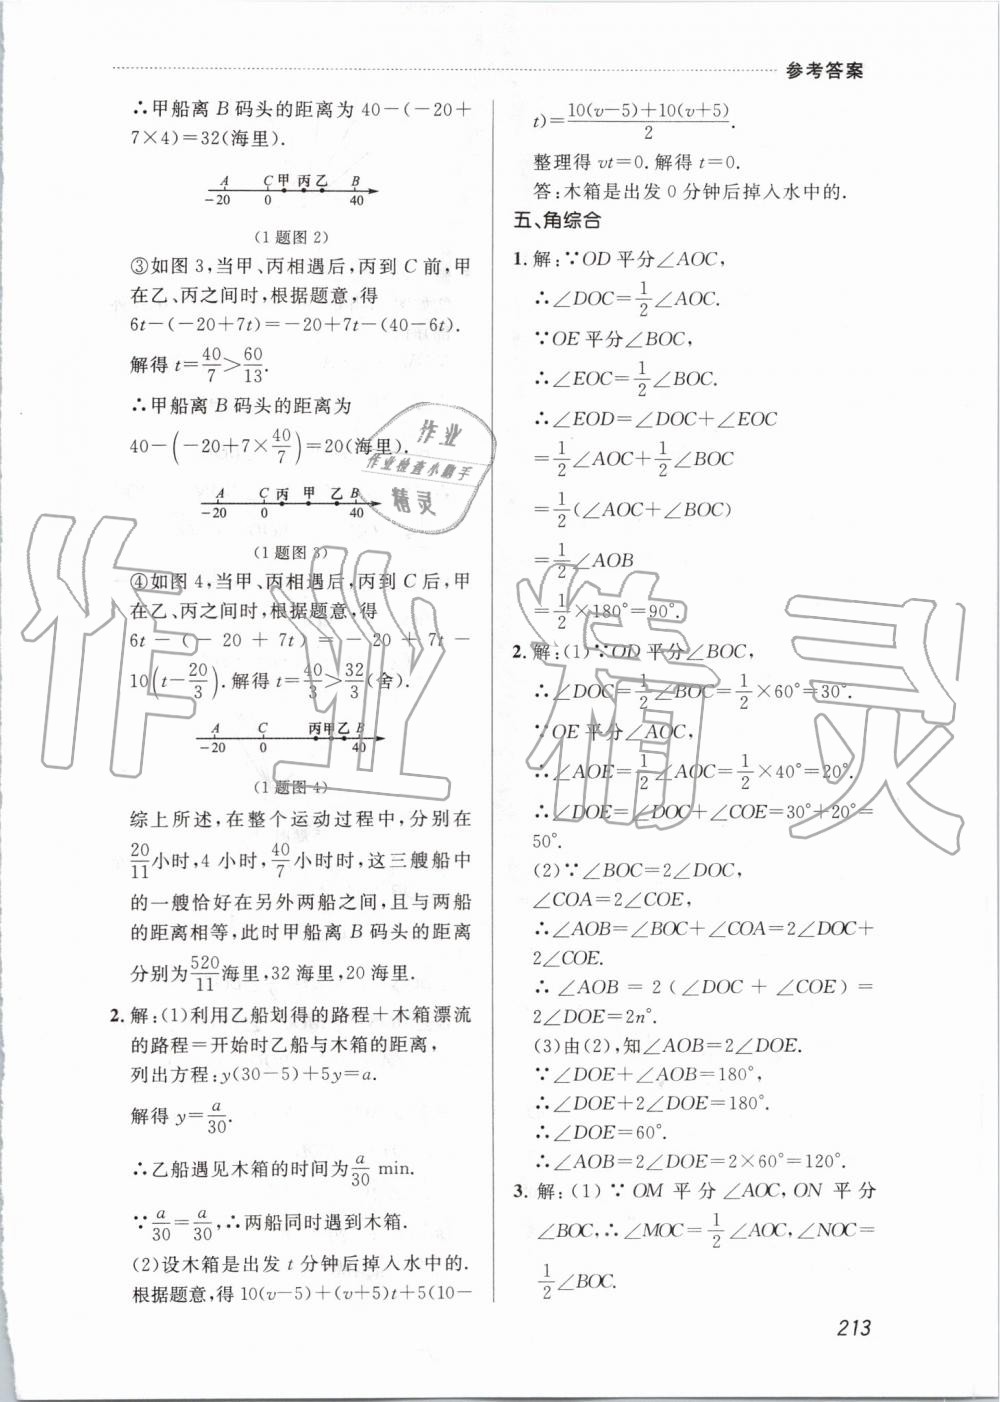 参考答案
∴甲船离 B 码头的距离为 40－(－20＋
7×4)＝32(海里).
A C 甲 丙 乙 B
－20 0 40
(1 题图 2)
③如图 3,当甲、丙相遇后,丙到 C 前,甲
在乙、丙之间时,根据题意,得
6t－(－20＋7t)＝－20＋7t－(40－6t).
解得 t＝40/7＞60/13.
∴甲船离 B 码头的距离为
40－(－20＋7×40/7)＝20(海里).
A C 丙 甲 乙 B
－20 0 40
(1 题图 3)
④如图 4,当甲、丙相遇后,丙到 C 后,甲
在乙、丙之间时,根据题意,得
6t－(－20＋7t)＝－20＋7t－
10(t－20/3).解得 t＝40/3＞32/3(舍).
A C 丙 甲 乙 B
－20 0 40
(1 题图 4)
综上所述,在整个运动过程中,分别在
20/11小时,4 小时,40/7小时时,这三艘船中
的一艘恰好在另外两船之间,且与两船
的距离相等,此时甲船离 B 码头的距离
分别为520/11海里,32 海里,20 海里.
2. 解:(1)利用乙船划得的路程＋木箱漂流
的路程＝开始时乙船与木箱的距离,
列出方程:y(30－5)＋5y＝a.
解得 y＝a/30.
∴乙船遇见木箱的时间为a/30 min.
∵a/30＝a/30,∴两船同时遇到木箱.
(2)设木箱是出发 t 分钟后掉入水中的.
根据题意,得 10(v－5)＋(v＋5)t＋5(10－
t)＝10(v－5)＋10(v＋5)/2.
整理得 vt＝0.解得 t＝0.
答:木箱是出发 0 分钟后掉入水中的.
五、角综合
1. 解:∵OD 平分∠AOC,
∴∠DOC＝1/2∠AOC.
∵OE 平分∠BOC,
∴∠EOC＝1/2∠BOC.
∴∠EOD＝∠DOC＋∠EOC
＝1/2∠AOC＋1/2∠BOC
＝1/2(∠AOC＋∠BOC)
＝1/2∠AOB
＝1/2×180°＝90°.
2. 解:(1)∵OD 平分∠BOC,
∴∠DOC＝1/2∠BOC＝1/2×60°＝30°.
∵OE 平分∠AOC,
∴∠AOE＝1/2∠AOC＝1/2×40°＝20°.
∴∠DOE＝∠DOC＋∠COE＝30°＋20°＝
50°.
(2)∵∠BOC＝2∠DOC,
∠COA＝2∠COE,
∴∠AOB＝∠BOC＋∠COA＝2∠DOC＋
2∠COE.
∴∠AOB＝2(∠DOC＋∠COE)＝
2∠DOE＝2n°.
(3)由(2),知∠AOB＝2∠DOE.
∵∠DOE＋∠AOB＝180°,
∴∠DOE＋2∠DOE＝180°.
∴∠DOE＝60°.
∴∠AOB＝2∠DOE＝2×60°＝120°.
3. 解:(1)∵OM 平分∠AOC,ON 平分
∠BOC,∴∠MOC＝1/2∠AOC,∠NOC＝
1/2∠BOC.
213
作业
作业检查小助手
精灵
作业精灵